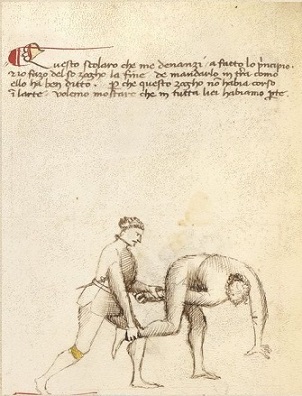 Questo scolaro che me denanzi a fatto lo principio.
Et io fazo del so zogho la fine de mandarlo in terra como
ello ha ben ditto. P che questo zogho non habia corso
in larte. volemo mostrare che in tutta lei habiamo parte.